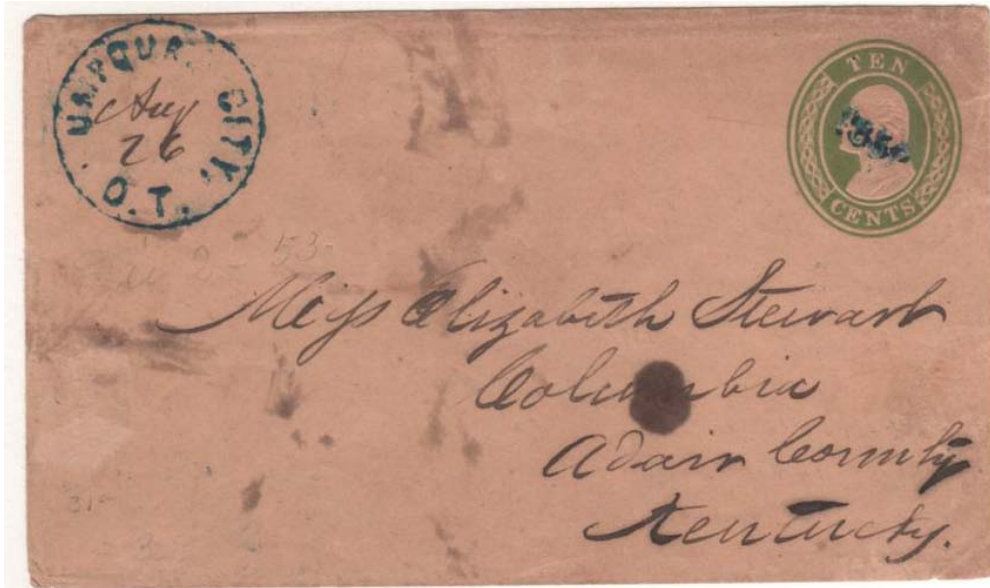 UMPQUA CITY, O.T.
Aug
26
TEN
CENTS
53
Miss Elizabeth Stewart
Columbia
Adair County
Kentucky.